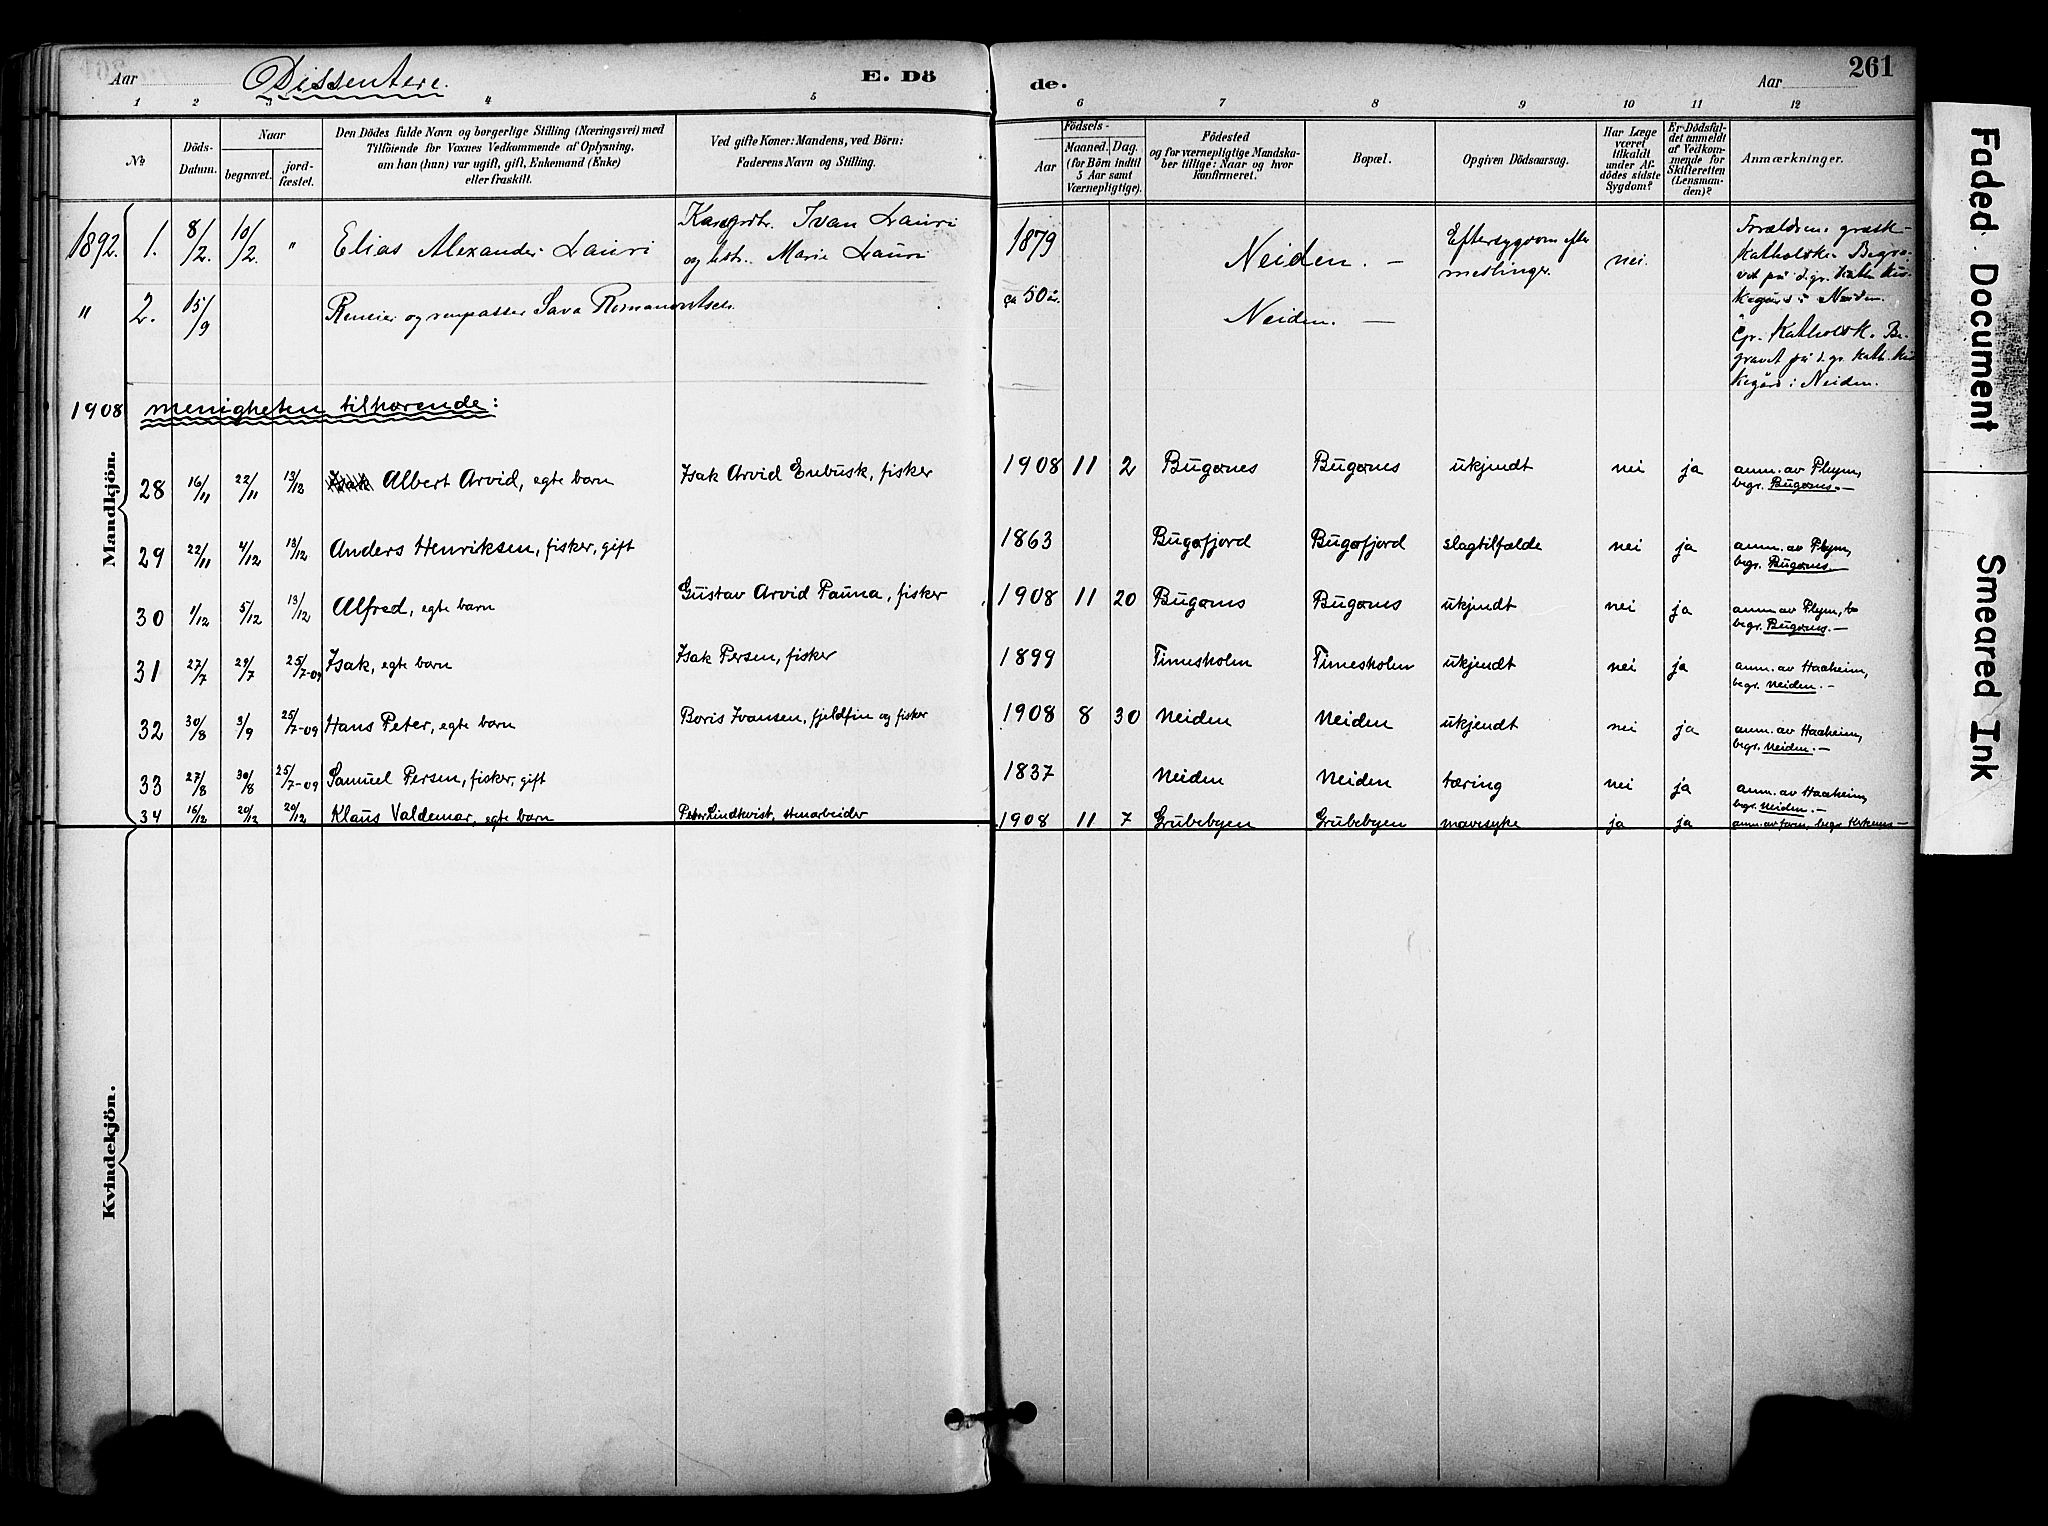 Aar Dissentere. E. Dö de. Aar 261
1 2 3 4 5 6 7 8 9 10 11 12
No
Döds-Datum.
Naar
begravet.
jord-fæstet.
Den Dödes fulde Navn og borgerlige Stilling (Næringsvei) med
Tilföiende for Voxnes Vedkommende af Oplysning,
om han (han) var ugift, gift, Enkemand (Enke)
eller fraskilt.
Ved gifte Koner: Mandens, ved Börn:
Faderens Navn og Stilling.
Födsels-
Aar
Maaned. Dag.
(for Börn indtil
5 Aar samt
Værnepligtige).
Födested
og for værnepligtige Mandska-
ber tillige: Naar og hvor
konfirmeret.
Bopæl.
Opgiven Dödsaarsag.
Har Læge
været
tilkaldt
under Af-
dödes sidste
Sygdom?
Er Dödsfal-
det anmeldt
af Vedkom-
mende for
Skifteretten
(Lensman-
den)?
Anmærkninger.
1892. 1. 8/2. 10/2. " Elias Alexander Lauri Ivan Lauri 1879 Neiden. — Eftersygdom efter nei.
og hstr. Marie Lauri meslinger.
Katholske. Begra-
vet på d. gr. kath. kir-
kegård i Neiden.
" 2. 15/9 Reneier og Sava Romanowitsch. ca 50 år. Neiden. —
gr. Katholsk. Be-
gravet på d. gr. kath. kir-
kegård i Neiden.
1908 menigheten tilhørende:
Mandkjön.
28 16/11 22/11 13/12 Albert Arvid, egte barn Isak Arvid Enbusk, fisker 1908 11 2 Bugønes Bugønes ukjendt nei ja anm. av Plym,
begr. Bugønes.—
29 22/11 4/12 13/12 Anders Henriksen, fisker, gift 1863 Bugøfjord Bugøfjord slagtilfælde nei ja anm. av Plym,
begr. Bugønes.—
30 1/12 5/12 13/12 Alfred, egte barn Gustav Arvid Pauna, fisker 1908 11 20 Bugønes Bugønes ukjendt nei ja anm. av Plym,
begr. Bugønes.—
31 27/7 29/7 25/7-09 Isak, egte barn Isak Persen, fisker 1899 Timesholm Timesholm ukjendt nei ja anm. av Haaheim,
begr. Neiden.—
32 30/8 3/9 25/7-09 Hans Peter, egte barn Boris Ivansen, fjeldfin og fisker 1908 8 30 Neiden Neiden ukjendt nei ja anm. av Haaheim,
begr. Neiden.—
33 27/8 30/8 25/7-09 Samuel Persen, fisker, gift 1837 Neiden Neiden tæring nei ja anm. av Haaheim,
begr. Neiden.—
34 16/12 20/12 20/12 Klaus Valdemar, egte barn Peter Lindkvist, stenarbeider 1908 11 7 Grubebyen Grubebyen mavesyke ja ja anm. av faren, begr. Kirkenes—
Kvindekjön.
Faded Document
Smeared Ink